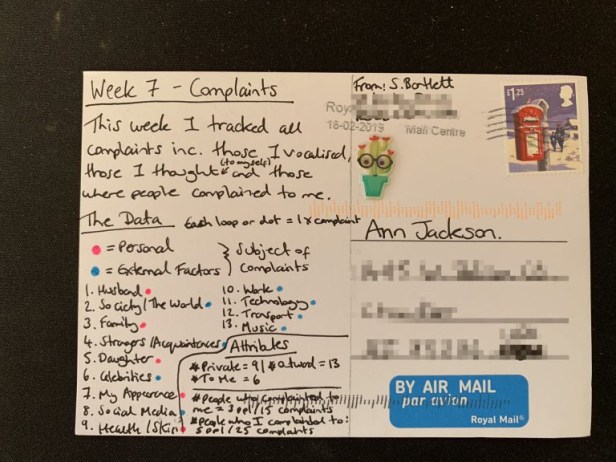 Week 7 - Complaints
This week I tracked all
complaints inc. those I vocalised,
(to myself)
those I thought and those
where people complained to me.
The Data Each loop or dot = 1 x complaint
= Personal
= External Factors
} Subject of
complaints
1. Husband
2. Society/The World
3. Family
4. Strangers/Acquaintances
5. Daughter
6. Celebrities
7. My Appearance
8. Social Media
9. Health/Skin
10. Work
11. Technology
12. Transport
13. Music
Attributes
#Private = 9 | #Outword = 13
#To Me = 6
#people who complainted to
me = 3ppl/15 complaints
#people who I complainted to:
5ppl/25 complaints
From: S. Bartlett
Roya
18-02-2019 Mail Centre
£1.25
Ann Jackson.
BY AIR MAIL
par avion
Royal Mail®